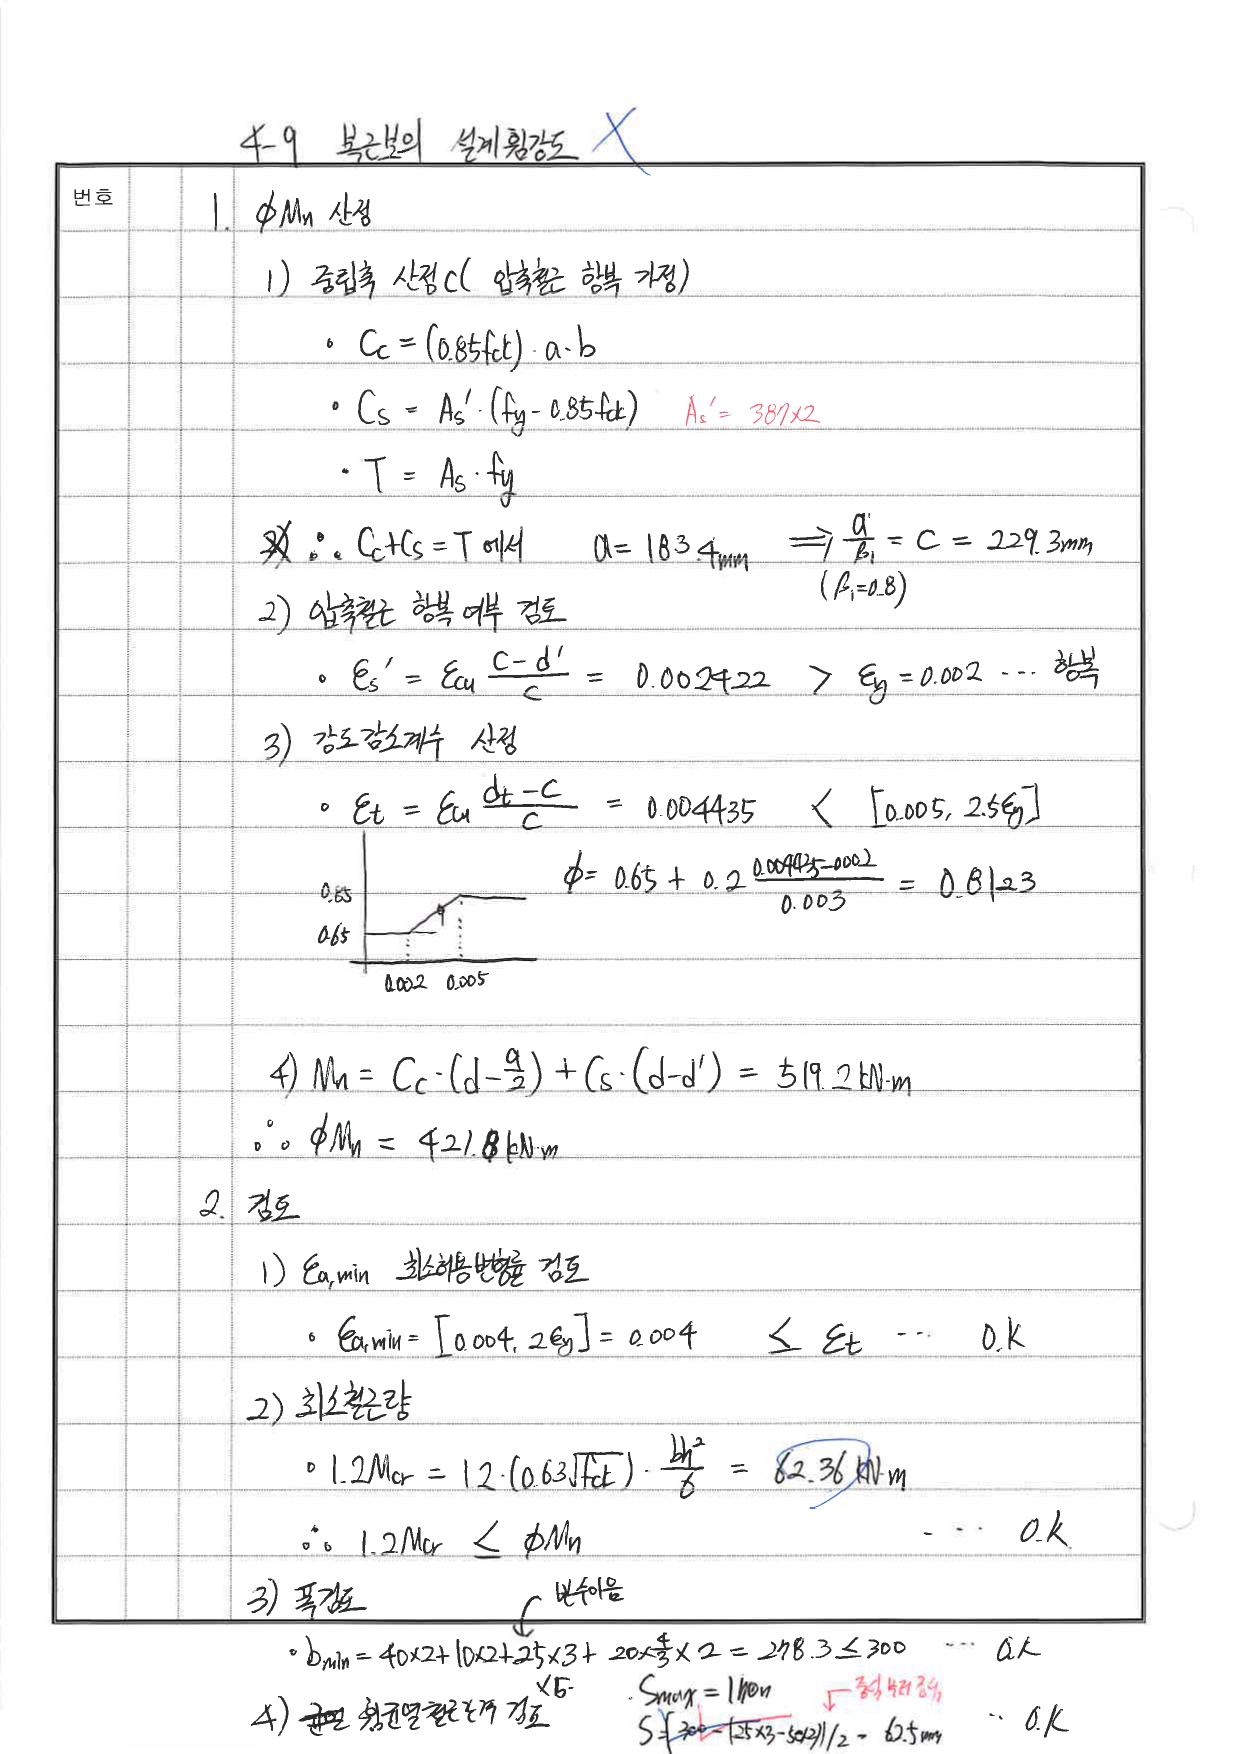 4-9 복근보의 설계휨강도 X
번호
1. ϕMn 산정
1) 중립축 산정 C( 압축철근 항복 가정)
• Cc = (0.85fck)·a·b
• Cs = As'·(fy - 0.85fck) As' = 387×2
• T = As·fy
∴ Cc+Cs = T 에서 a = 183.4mm ⇒ a/β1 = C = 229.3mm
(β1=0.8)
2) 압축철근 항복 여부 검토
• εs' = εcu (c-d')/c = 0.002422 > εy = 0.002 ... 항복
3) 강도감소계수 산정
• εt = εcu (dt-c)/c = 0.004435 < [0.005, 2.5εy]
ϕ = 0.65 + 0.2 (0.004435-0.002)/0.003 = 0.8123
0.85
0.65
0.002 0.005
4) Mn = Cc·(d-a/2) + Cs·(d-d') = 519.2 kN·m
∴ ϕMn = 421.8 kN·m
2. 검토
1) εa,min 최소허용변형률 검토
• εa,min = [0.004, 2εy] = 0.004 ≤ εt ... O.K
2) 최소철근량
• 1.2Mcr = 1.2·(0.63√fck)·bh²/6 = 62.36 kN·m
∴ 1.2Mcr ≤ ϕMn ... O.K
3) 폭검토
• bmin = 40×2+10×2+25×3+20×4/3×2 = 278.3 ≤ 300 ... O.K
×5
4) 휨균열철근간격 검토 · Smax =
S = [300 - (25×3-50×2)]/2 = 62.5mm ·· O.K